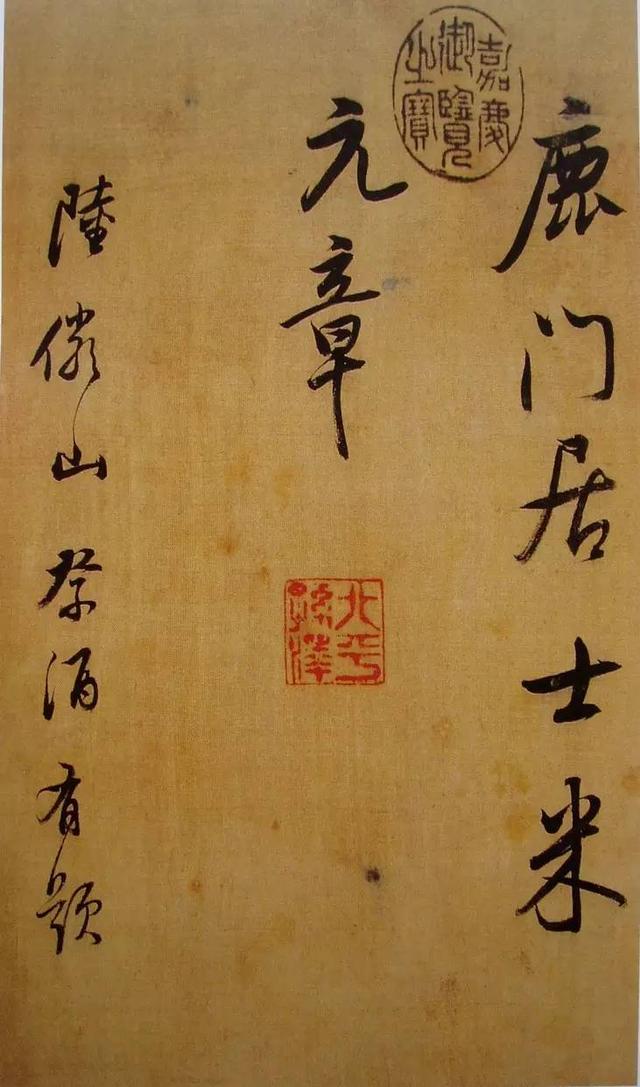 嘉慶御覽之寶
鹿门居士米
元章
北平孫澤
陸儼山祭酒有題